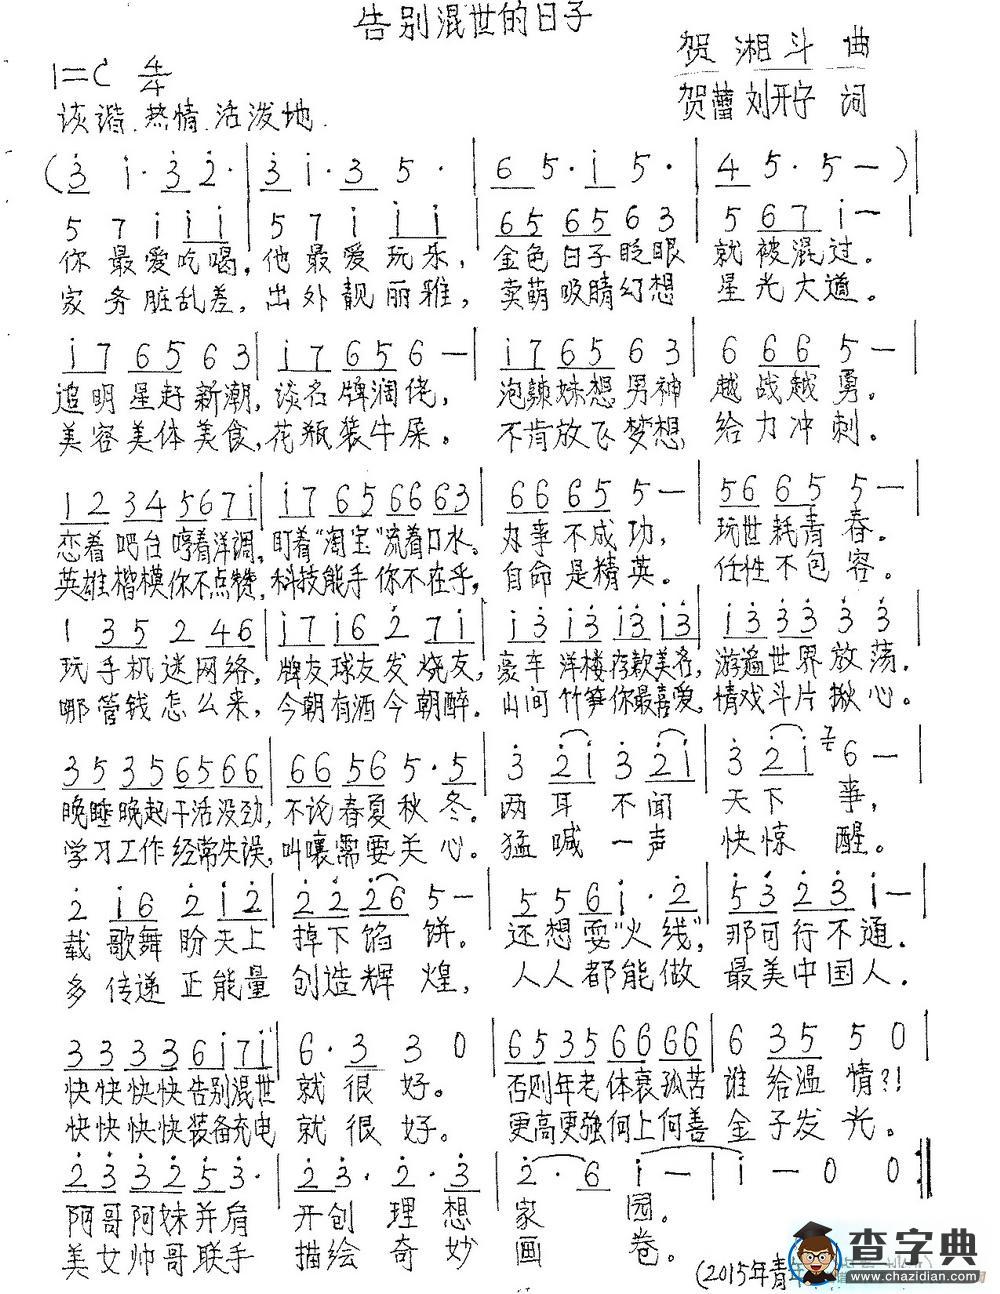 告别混世的日子
贺湘斗 曲
1=C 4/4
贺蕾 刘开宇 词
诙谐.热情.活泼地.
(3̇ 1̇· 3̇ 2̇· | 3̇ 1̇· 3̇ 5· | 6 5· 1̇ 5· | 4 5· 5 — ) |
5 7 1̇ 1̇ 1̇ | 5 7 1̇ 1̇ 1̇ | 65 65 6 3 | 5 67 1̇ — |
你最爱吃喝,他最爱玩乐,金色日子眨眼就被混过.
家务脏乱差,出外靓丽雅,卖萌吸睛幻想星光大道。
1̇7 65 6 3 | 1̇7 65 6 — | 1̇7 65 6 3 | 6 66 5 — |
追明星赶新潮,谈名牌润佬,泡辣妹想男神越战越勇。
美容美体美食,花瓶装牛屎。不肯放飞梦想,给力冲刺。
12 34 56 71̇ | 1̇7 65 66 63 | 66 65 5 — | 56 65 5 — |
恋着吧台哼着洋调,盯着"淘宝"流着口水。办事不成功,玩世耗青春。
英雄楷模你不点赞,科技能手你不在乎,自命是精英.任性不包容.
1 35 2 46 | 1̇7 1̇6 2̇ 71̇ | 1̇3̇ 1̇3̇ 1̇3̇ 1̇3̇ | 1̇3̇ 3̇3̇ 3̇ 3̇
玩手机迷网络,牌友球友发烧友,豪车洋楼存款美名,游遍世界放荡.
哪管钱怎么来,今朝有酒今朝醉.山间竹笋你最喜爱,情戏斗片揪心。
35 35 65 66 | 66 56 5· 5 | 3̇ 2̇1̇ 3̇ 2̇1̇ | 3̇ 2̇1̇ 6 — |
晚睡晚起干活没劲,不论春夏秋冬。两耳不闻天下事,
学习工作经常失误,叫嚷需要关心。猛喊一声快惊醒。
2̇ 1̇6 2̇ 1̇2̇ | 2̇2̇ 2̇6 5 — | 5 5 6 1̇· 2̇ | 5 3̇ 2̇ 3̇ 1̇ — |
载歌舞盼天上掉下馅饼。还想耍"火线",那可行不通.
多传递正能量创造辉煌,人人都能做最美中国人.
33 33 61̇ 71̇ | 6· 3 3 0 | 65 35 66 66 | 6 35 5 0 |
快快快快告别混世就很好。否则年老体衰孤苦谁给温情?!
快快快快装备充电就很好。更高更强何上何善金子发光。
2̇3̇ 3̇2̇ 5 3̇· | 2̇ 3̇· 2̇· 3̇ | 2̇· 6 1̇ — | 1̇ — 0 0 :‖
阿哥阿妹并肩开创理想家园.
美女帅哥联手描绘奇妙画卷。
(2015年青
查字典
www.chazidian.com